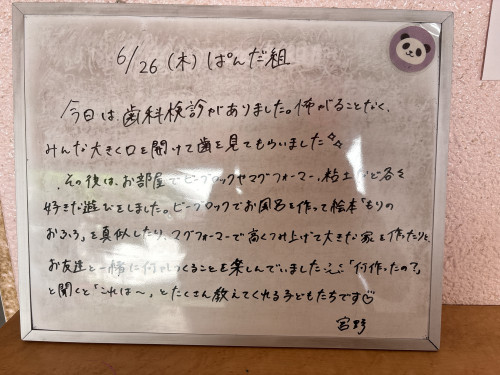 6/26 (木) ぱんだ組
今日は歯科検診がありました。怖がることなく、
みんな大きく口を開けて歯を見てもらいました
その後は、お部屋でビーブロックやマグフォーマー、粘土など各々
好きな遊びをしました。ビーブロックでお風呂を作って絵本「もりの
おふろ」を真似したり、マグフォーマーで高くつみ上げて大きな家を作ったりと、
お友達と一緒に何かしつくることを楽しんでいました 「何作ったの?」
と聞くと「これは〜」とたくさん教えてくれる子どもたちです♡
宮野